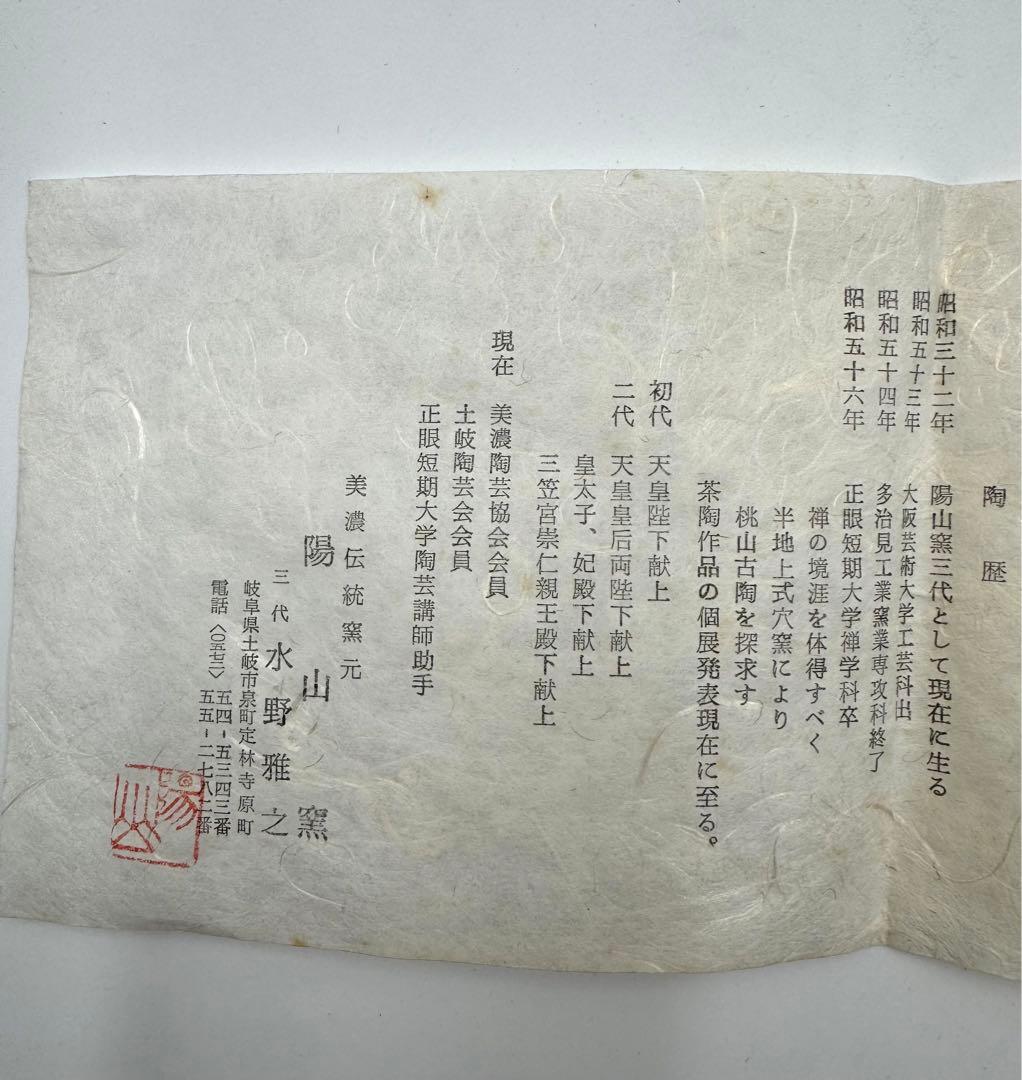 陶歴
昭和三十二年 陽山窯三代として現在に生る
昭和五十三年 大阪芸術大学工芸科出
昭和五十四年 多治見工業窯業専攻科終了
昭和五十六年 正眼短期大学禅学科卒
禅の境涯を体得すべく
半地上式穴窯により
桃山古陶を探求す
茶陶作品の個展発表現在に至る。
初代 天皇陛下献上
二代 天皇皇后両陛下献上
皇太子、妃殿下献上
三笠宮崇仁親王殿下献上
現在 美濃陶芸協会会員
土岐陶芸会会員
正眼短期大学陶芸講師助手
美濃伝統窯元
陽山窯
三代 水野雅之
岐阜県土岐市泉町定林寺原町
電話〈〇五七二〉五四-五三四三番
五五-二七八二番
陽山